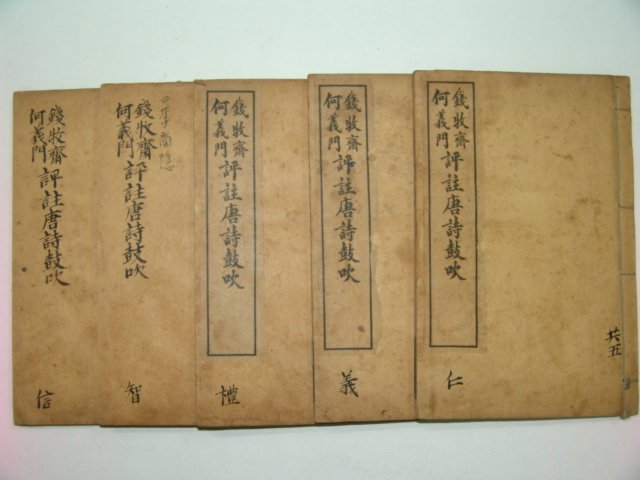 共五
錢牧齋
何義門
評註唐詩鼓吹
仁
錢牧齋
何義門
評註唐詩鼓吹
義
錢牧齋
何義門
評註唐詩鼓吹
禮
李商隱
錢牧齋
何義門
評註唐詩鼓吹
智
錢牧齋
何義門
評註唐詩鼓吹
信